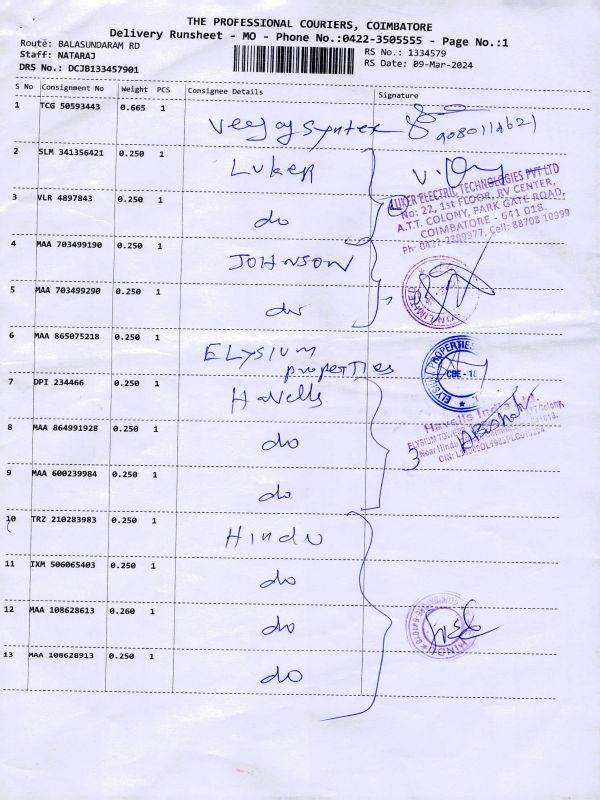 THE PROFESSIONAL COURIERS, COIMBATORE
Delivery Runsheet - MO - Phone No.:0422-3505555 - Page No.:1
Route: BALASUNDARAM RD
Staff: NATARAJ
DRS No.: DCJB133457901
RS No.: 1334579
RS Date: 09-Mar-2024
S No Consignment No Weight PCS Consignee Details Signature
1 TCG 50593443 0.665 1 Veejay Syntex 9080114621
2 SLM 341356421 0.250 1 Luker
LUKER ELECTRIC TECHNOLOGIES PVT LTD
No: 22, 1st FLOOR, RV CENTER,
A.T.T. COLONY, PARK GATE ROAD,
COIMBATORE - 641 018.
Ph: 0422-2309977, Cell: 88708 10999
3 VLR 4897843 0.250 1 do
4 MAA 703499190 0.250 1 JOHNSON
5 MAA 703499290 0.250 1 do
6 MAA 865075218 0.250 1 ELYSIUM
properties
ELYSIUM PROPERTIES
CBE - 18
7 DPI 234466 0.250 1 Havells
Havells India Ltd.
8 MAA 864991928 0.250 1 do
3
9 MAA 600239984 0.250 1 do
10 TRZ 210283983 0.250 1 Hindu
11 IXM 506065403 0.250 1 do
12 MAA 108628613 0.260 1 do
HINDU
13 MAA 108628913 0.250 1 do